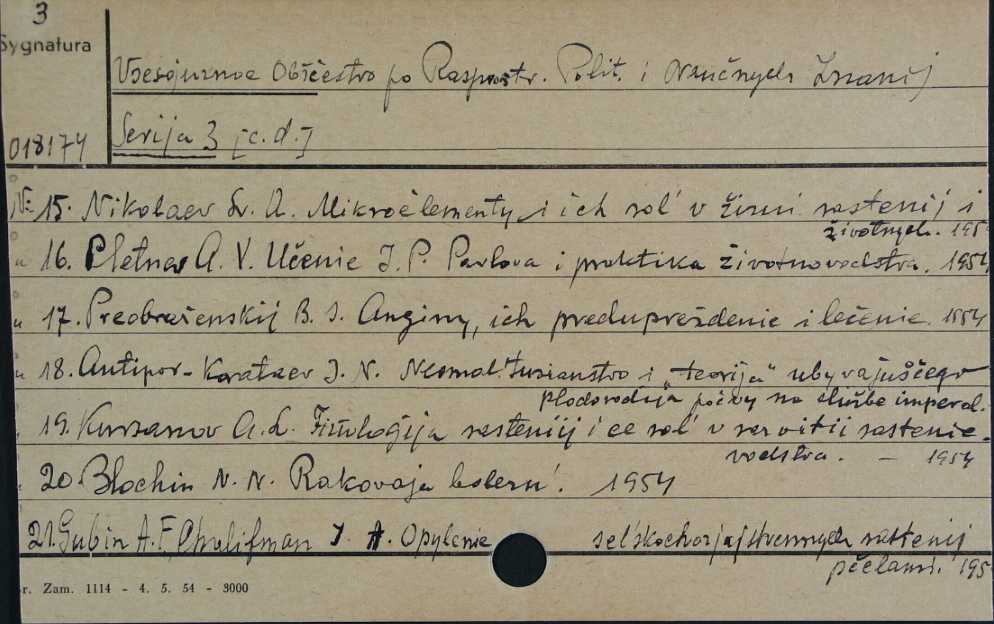 3
Sygnatura
Vsesojuznoe Obščestvo po Rasprostr. Polit. i Naučnych Znanij
018174
Serija 3 [c.d.]
Nr 15. Nikolaev A. Mikroėlementy i ich rol' v žizni rastenij i
životnych. 195
" 16. Pletnev A. V. Učenie I. P. Pavlova i praktika životnovodstva. 1954
" 17. Preobraženskij B. S. Anginy, ich predupreždenie i lečenie. 1954
" 18. Antipov-Karataev I. N. Neomal'tuzianstvo i „teorija" ubyvajuščego
plodorodija počvy na službe imperial.
19. Kursanov A. L. Fiziologija rastenij i ee rol' v razvitii rastenie-
vodstva. - 1954
20. Blochin N. N. Rakovaja bolezn'. 1954
21. Gubin A. F. Chalifman I. A. Opylenie sel'skochozjajstvennych rastenij
pčelami. 195
r. Zam. 1114 - 4. 5. 54 - 3000